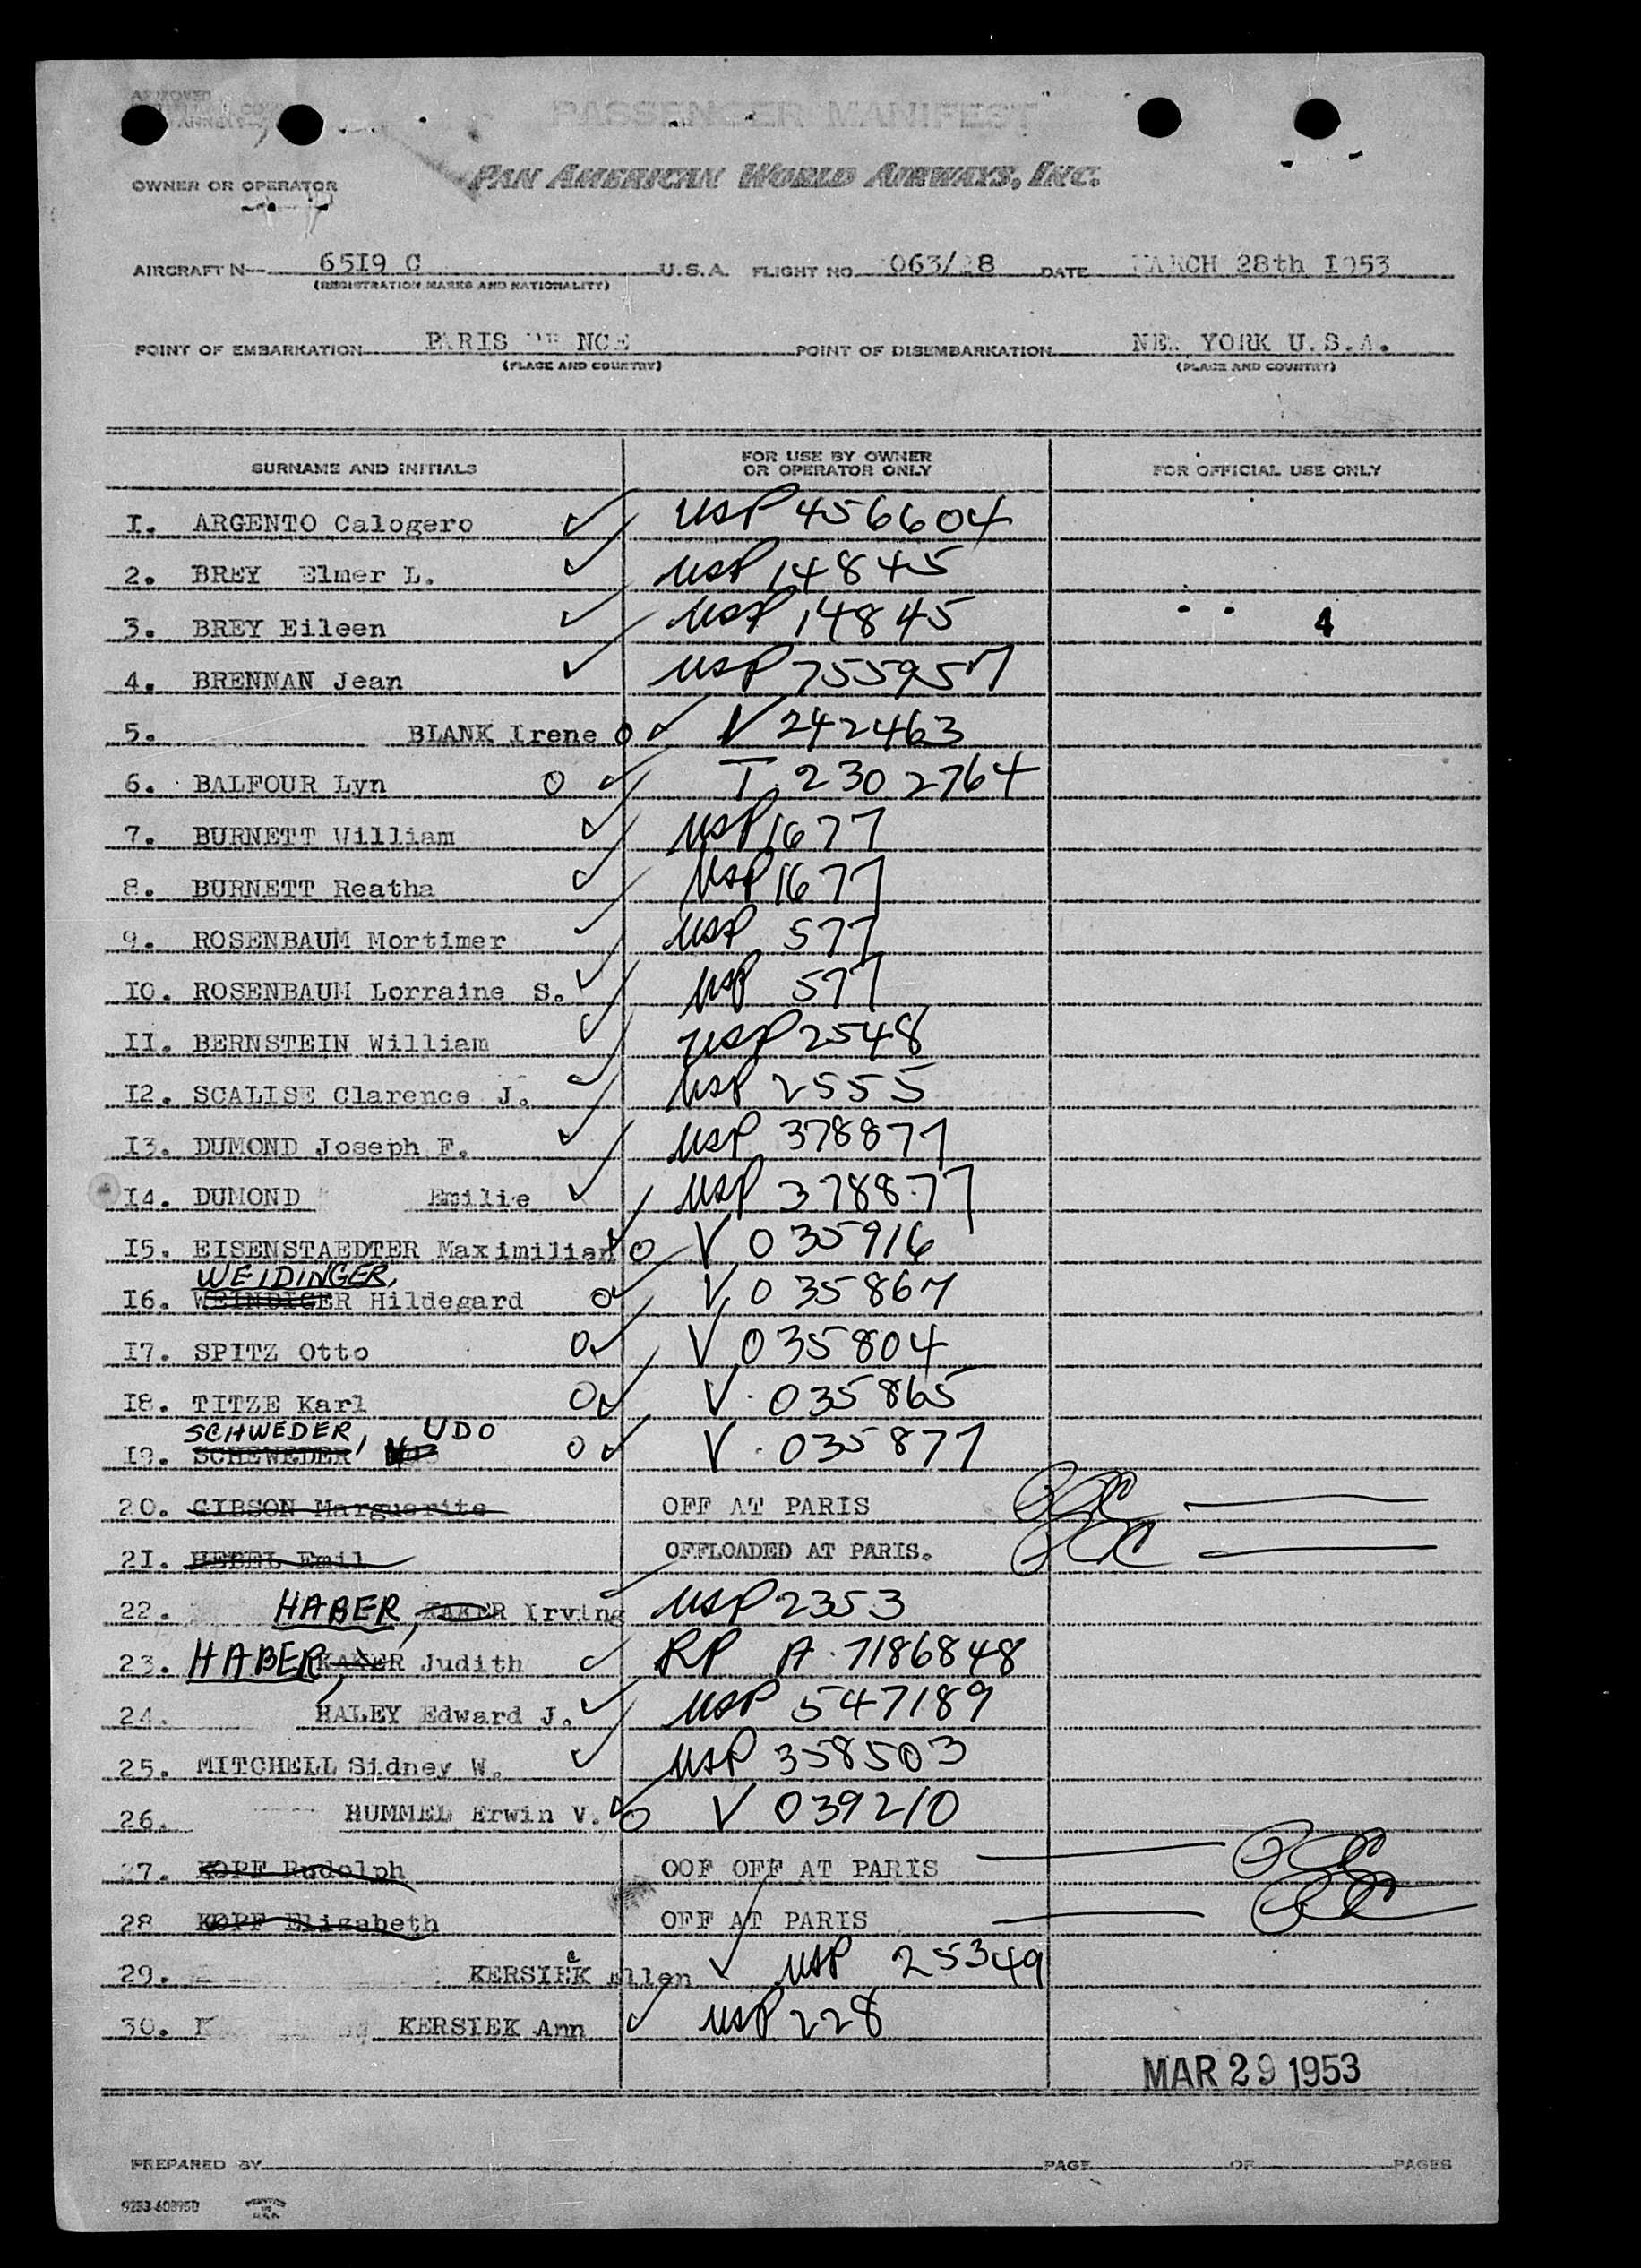 PASSENGER MANIFEST
OWNER OR OPERATOR PAN AMERICAN WORLD AIRWAYS, INC.
AIRCRAFT N 65I9 C U.S.A. FLIGHT NO. 063/28 DATE MARCH 28th I953
(REGISTRATION MARKS AND NATIONALITY)
POINT OF EMBARKATION PARIS POINT OF DISEMBARKATION NEW YORK U.S.A.
(PLACE AND COUNTRY) (PLACE AND COUNTRY)
SURNAME AND INITIALS FOR USE BY OWNER OR OPERATOR ONLY FOR OFFICIAL USE ONLY
I. ARGENTO Calogero ✓ USP 456604
2. BREY Elmer L. ✓ USP 14845
3. BREY Eileen ✓ USP 14845 4
4. BRENNAN Jean ✓ USP 755957
5. BLANK Irene O ✓ V 242463
6. BALFOUR Lyn O ✓ T. 2302764
7. BURNETT William ✓ USP 1677
8. BURNETT Reatha ✓ USP 1677
9. ROSENBAUM Mortimer ✓ USP 577
IO. ROSENBAUM Lorraine S. ✓ USP 577
II. BERNSTEIN William ✓ USP 2548
I2. SCALISE Clarence J. ✓ USP 2555
I3. DUMOND Joseph F. ✓ USP 378877
I4. DUMOND Emilie ✓ USP 378877
I5. EISENSTAEDTER Maximilian ✓ O V 035916
WEIDINGER,
I6. WEINDIGER Hildegard O ✓ V. 035867
I7. SPITZ Otto O ✓ V 035804
I8. TITZE Karl O ✓ V. 035865
SCHWEDER, UDO
I9. SCHEWEDER O ✓ V. 035877
20. GIBSON Marguerite OFF AT PARIS
2I. HEBEL Emil OFFLOADED AT PARIS.
22. HABER, Irving USP 2353
23. HABER, KAKER Judith ✓ RP A. 7186848
24. HALEY Edward J. ✓ USP 547189
25. MITCHELL Sidney W. ✓ USP 358503
26. HUMMEL Erwin V. ✓ O V 039210
27. KOPF Rudolph OOF OFF AT PARIS
28 KOPF Elizabeth OFF AT PARIS
29. KERSIEK Ellen ✓ USP 25349
30. KERSIEK Ann ✓ USP 228
MAR 29 1953
PREPARED BY PAGE OF PAGES